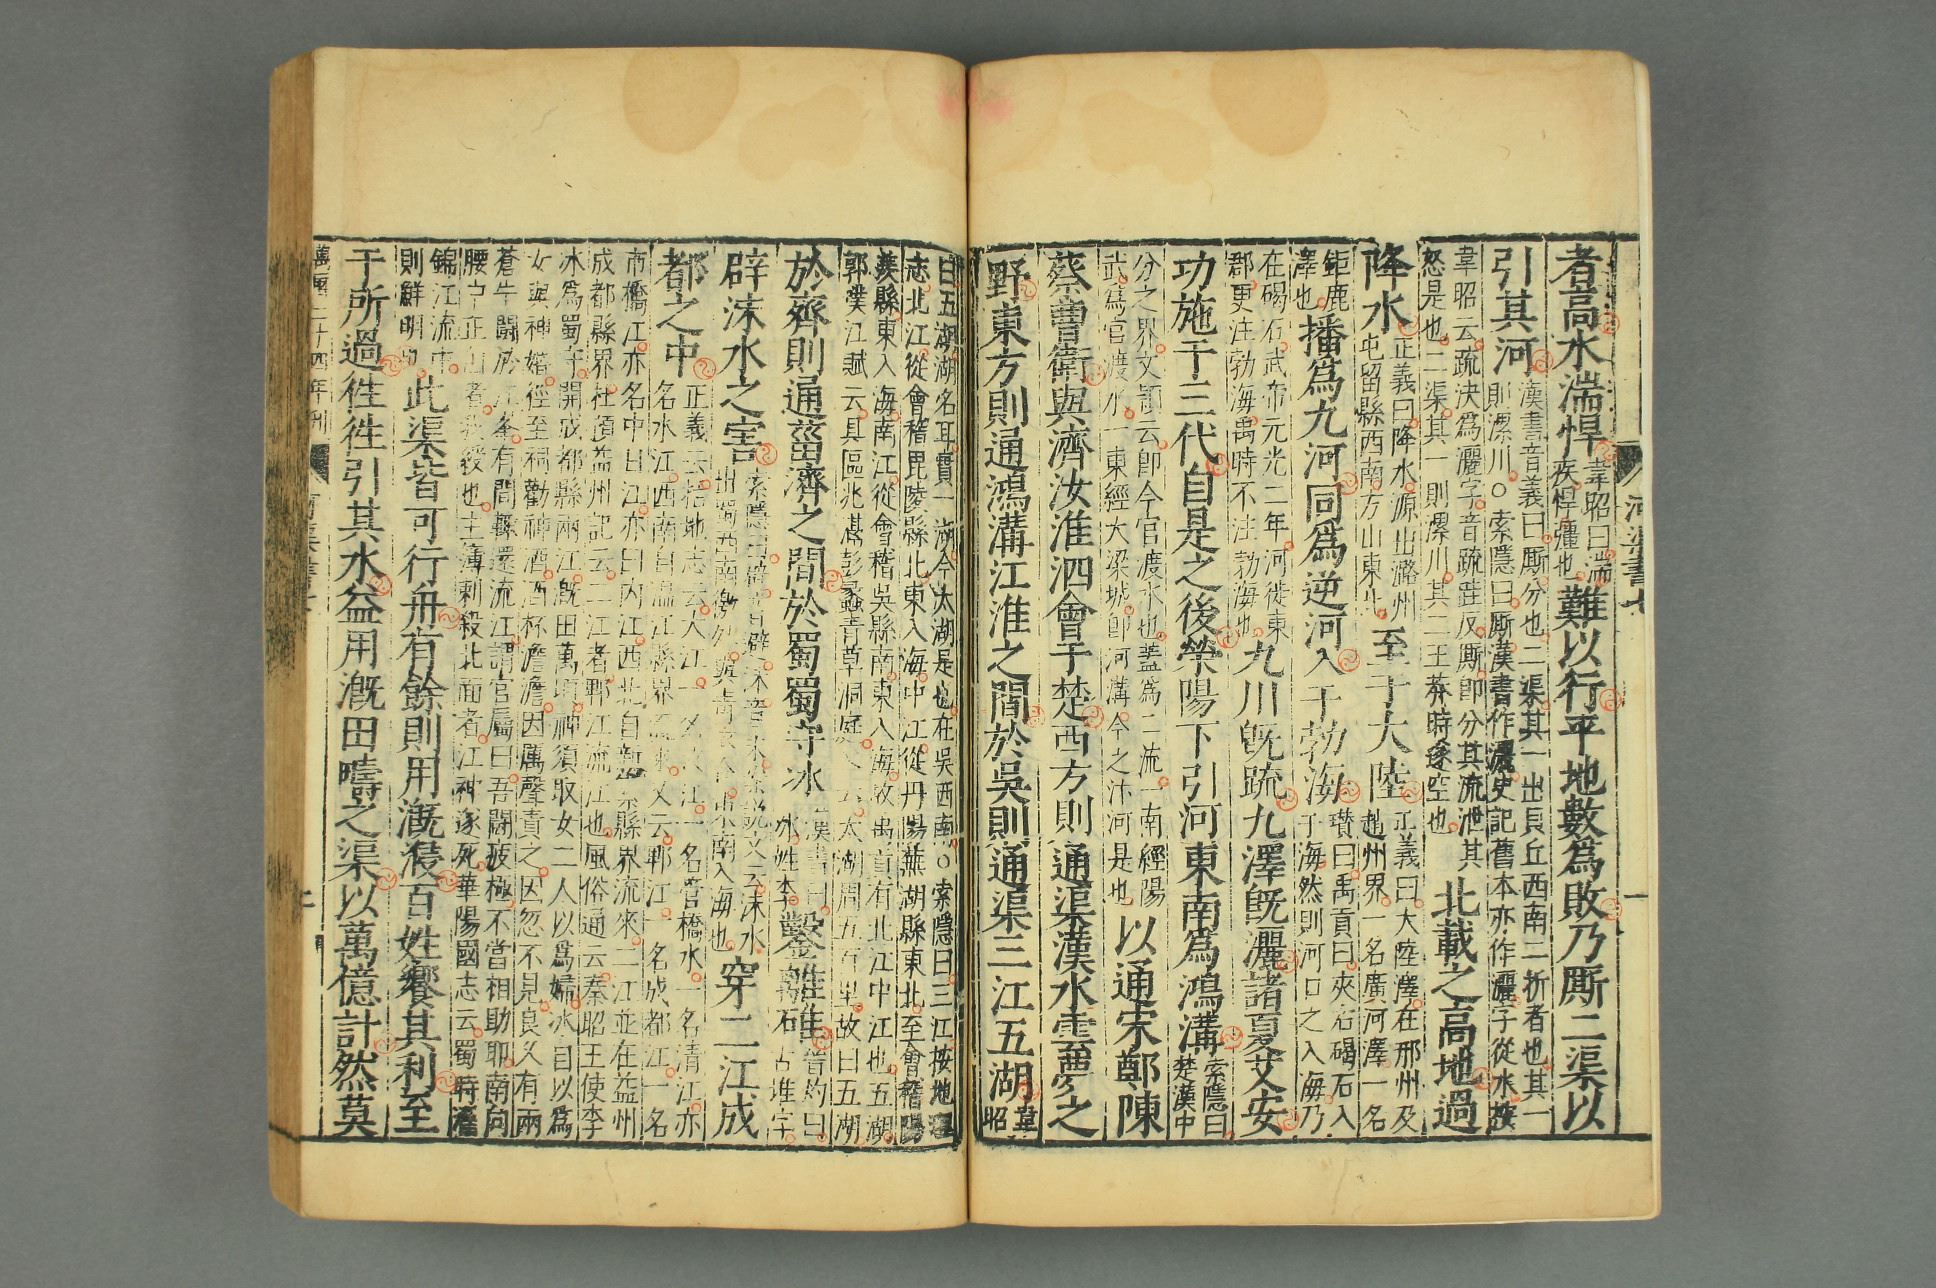 河渠書七
一
者高水湍悍韋昭曰湍疾悍彊也難以行平地數為敗乃厮二渠以
引其河漢書音義曰厮分也二渠其一出貝丘西南二折者也其一則漯川○索隱曰厮漢書作灑史記舊本亦作灑字從水按
韋昭云疏決為灑字音疏跬反厮即分其流泄其怒是也二渠其一則漯川其二王莽時遂空也北載之高地過
降水正義曰降水源出潞州屯留縣西南方山東北至于大陸正義曰大陸澤在邢州及趙州界一名廣河澤一名
鉅鹿澤也播為九河同為逆河入于勃海瓚曰禹貢曰夾右碣石入于海然則河口之入海乃
在碣石武帝元光二年河徙東郡更注勃海禹時不注勃海也九川旣疏九澤旣灑諸夏艾安
功施于三代自是之後滎陽下引河東南為鴻溝索隱曰楚漢中
分之界文頴云即今官渡水也蓋為二流一南經陽武為官渡水一東經大梁城即河溝今之汴河是也以通宋鄭陳
蔡曹衛與濟汝淮泗會于楚西方則通渠漢水雲夢之
野東方則通鴻溝江淮之間於吳則通渠三江五湖韋昭
曰五湖湖名耳實一湖今太湖是也在吳西南○索隱曰三江按地理
志北江從會稽毗陵縣北東入海中江從丹陽蕪湖縣東北至會稽陽
羨縣東入海南江從會稽吳縣南東入海故禹貢有北江中江也五湖
郭璞江賦云具區洮滆彭蠡青草洞庭又云太湖周五百里故曰五湖
於齊則通菑濟之間於蜀蜀守冰漢書曰冰姓李鑿離碓晉灼曰離碓古堆字
辟沫水之害索隱曰辟音避沫音末按說文云沫水出蜀西南徼外與青衣合東南入海也穿二江成
都之中正義云括地志云大江一名汶江一名管橋水一名清江亦名水江西南自溫江縣界流來又云郫江一名成都江一名
市橋江亦名中日江亦曰内江西北自新繁縣界流來二江並在益州
成都縣界杜預益州記云二江者郫江流江也風俗通云秦昭王使李
冰為蜀守開成都縣兩江漑田萬頃神須取女二人以為婦冰自以為
女與神婚徑至祠勸神酒酒杯澹澹因厲聲責之因忽不見良久有兩
蒼牛鬭於江岸有間輒還流江謂官屬曰吾鬭疲極不當相助耶南向
腰中正白者我綬也主簿刺殺北面者江神遂死華陽國志云蜀時濯
錦江流中則鮮明也此渠皆可行舟有餘則用漑浸百姓饗其利至
于所過徃徃引其水益用漑田疇之渠以萬億計然莫
萬曆二十四年刊
二